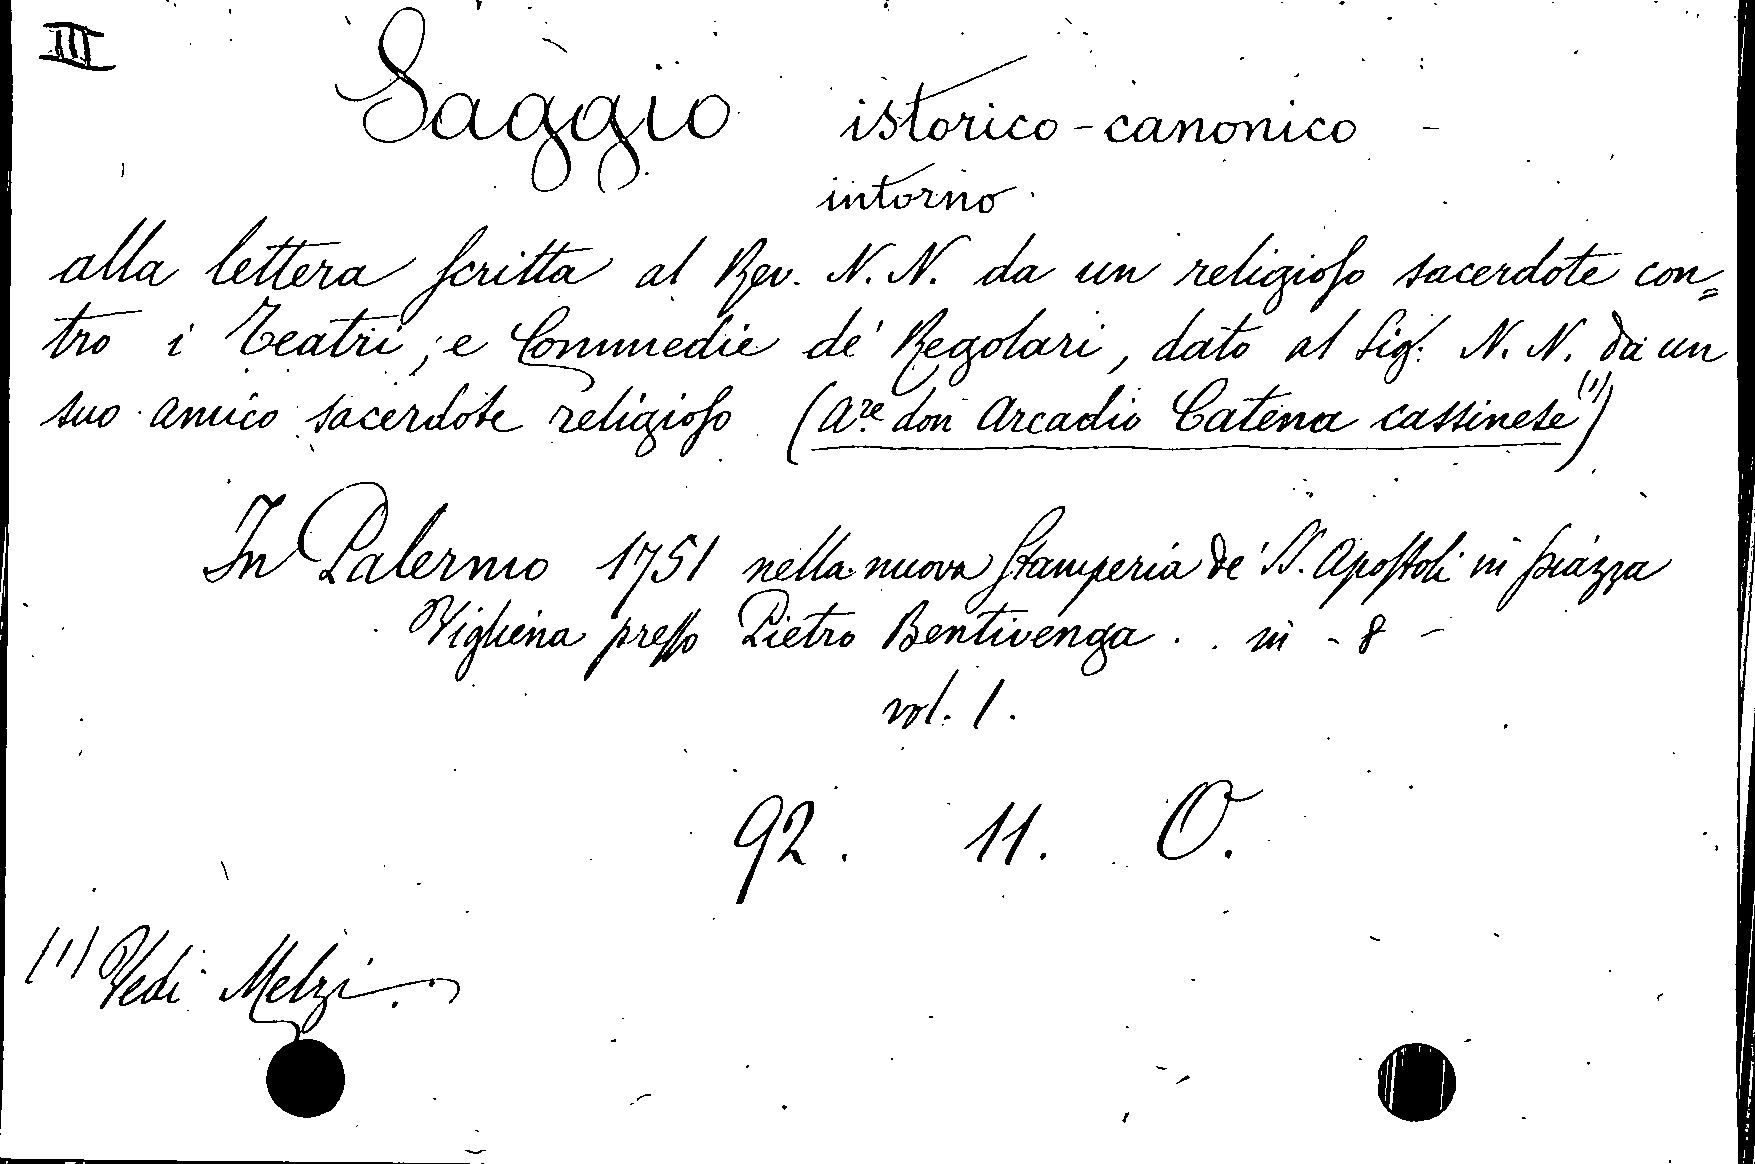 III
Saggio istorico-canonico -
intorno
alla lettera scritta al Rev. N. N. da un religioso sacerdote con=
tro i Teatri, e Commedie de' Regolari, dato al Sig.r N. N. da un
suo amico sacerdote religioso (Are don Arcadio Catena cassinese (1))
In Palermo 1751 nella nuova Stamperia de' SS. Apostoli in piazza
Vigliena presso Pietro Bentivenga . in - 8 -
vol. 1.
92. 11. O.
(1) Vedi Melzi.